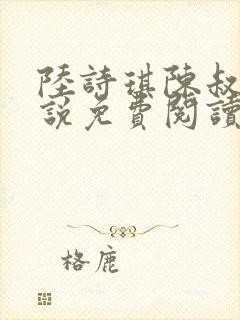 陸詩琪陳叔
說免費閱讀
格鹿